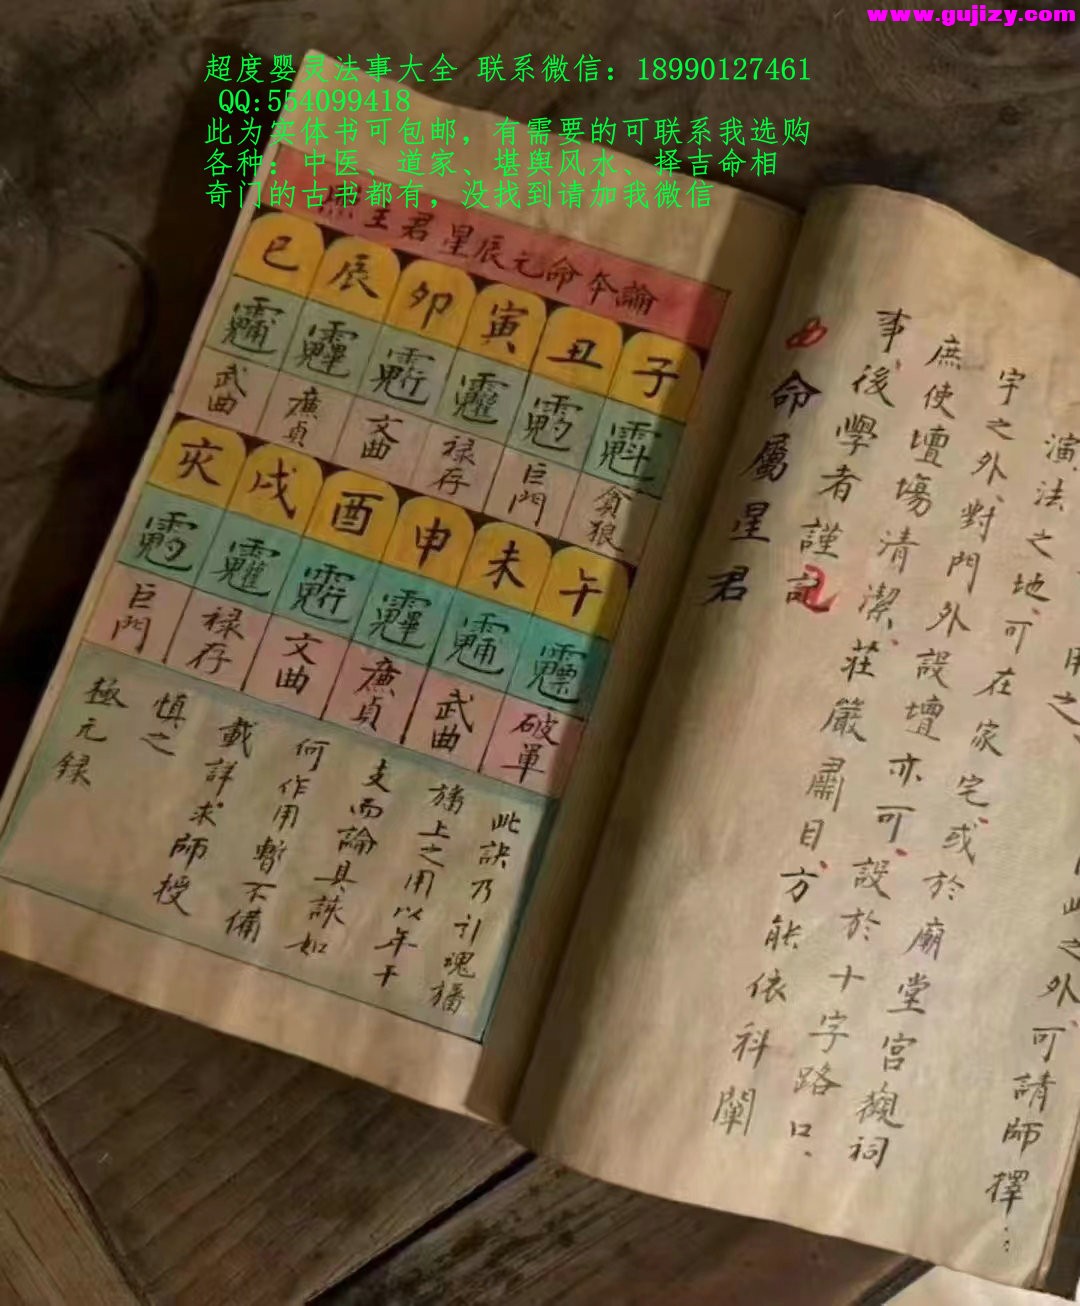 www.gujizy.com
超度婴灵法事大全 联系微信：18990127461
QQ:554099418
此为实体书可包邮，有需要的可联系我选购
各种：中医、道家、堪舆风水、择吉命相
奇门的古书都有，没找到请加我微信
演法之地、可在家宅、或於廟堂宫觀祠
宇之外、對門外設壇亦可、設於十字路口、
庶使壇場清潔、莊嚴肅目、方能依科闡
事、後學者謹記
命屬星君
照主君星辰元命本論
子 丑 寅 卯 辰 巳
魁 魓 魖 魒 魓
貪狼 巨門 禄存 文曲 廉貞 武曲
午 未 申 酉 戌 亥
破軍 武曲 廉貞 文曲 禄存 巨門
此訣乃引魂旛
旛上之用以年干
支而論具該如
何作用暫不備
載詳求師授
慎之
極元録